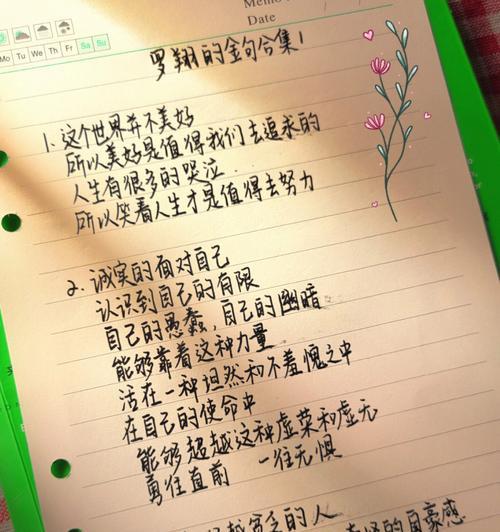 Memo
Date
Mo Tu We Th Fr Sa Su
罗翔的金句合集1
1. 这个世界并不美好
所以美好是值得我们去追求的
人生有很多的哭泣
所以笑着人生才是值得去努力
2. 诚实的面对自己
认识到自己的有限
自己的愚蠢,自己的幽暗
能够靠着这种力量
活在一种坦然和不羞愧之中
在自己的使命中
能够超越这种虚荣和虚无
勇往直前 一往无惧
越贫乏的人
的自豪感